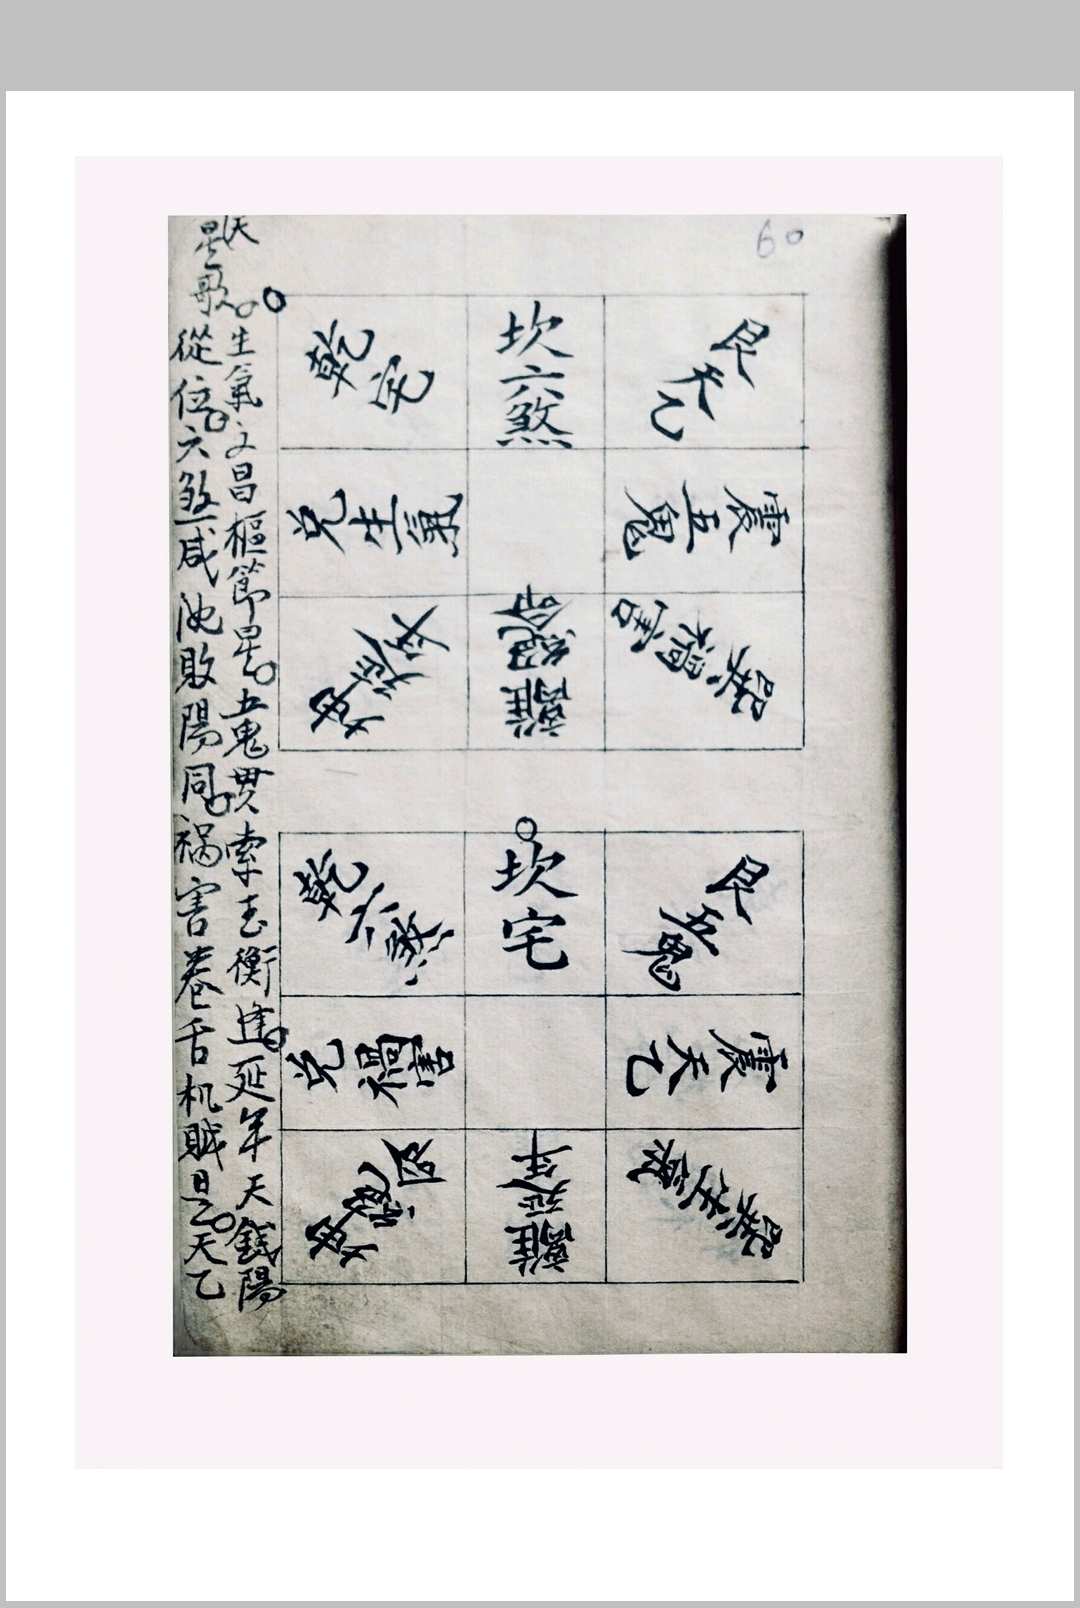 60
艮天乙
坎六煞
乾宅
震五鬼
兌生氣
巽禍害
離絕命
坤延年
艮五鬼
坎宅
乾六煞
震天乙
兌禍害
巽生氣
離延年
坤絕命
天星歌
生氣文昌樞節星五鬼貫索玉衡逢延年天錢陽
從位六煞咸池敗陽同祸害卷舌机賊是天乙